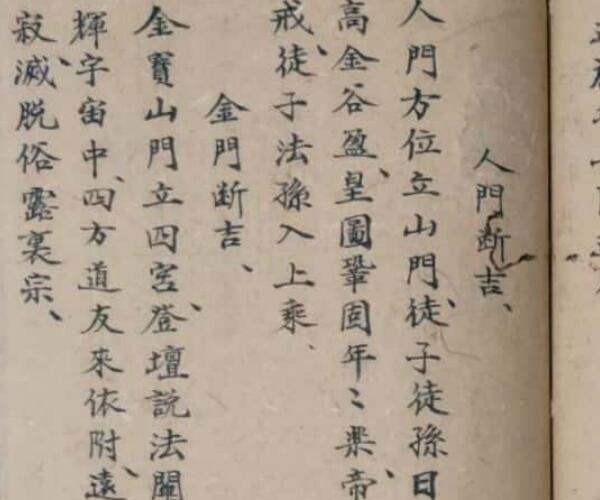 人門断吉、
人門方位立山門、徒子徒孫日
高金谷盈、皇圖鞏固年〻楽、帝
戒、徒子法孫入上乘、
金門断吉、
金寶山門立四宮、登壇説法闡
輝宇宙中、四方道友來依附、遠
寂滅、脱俗露裏宗、